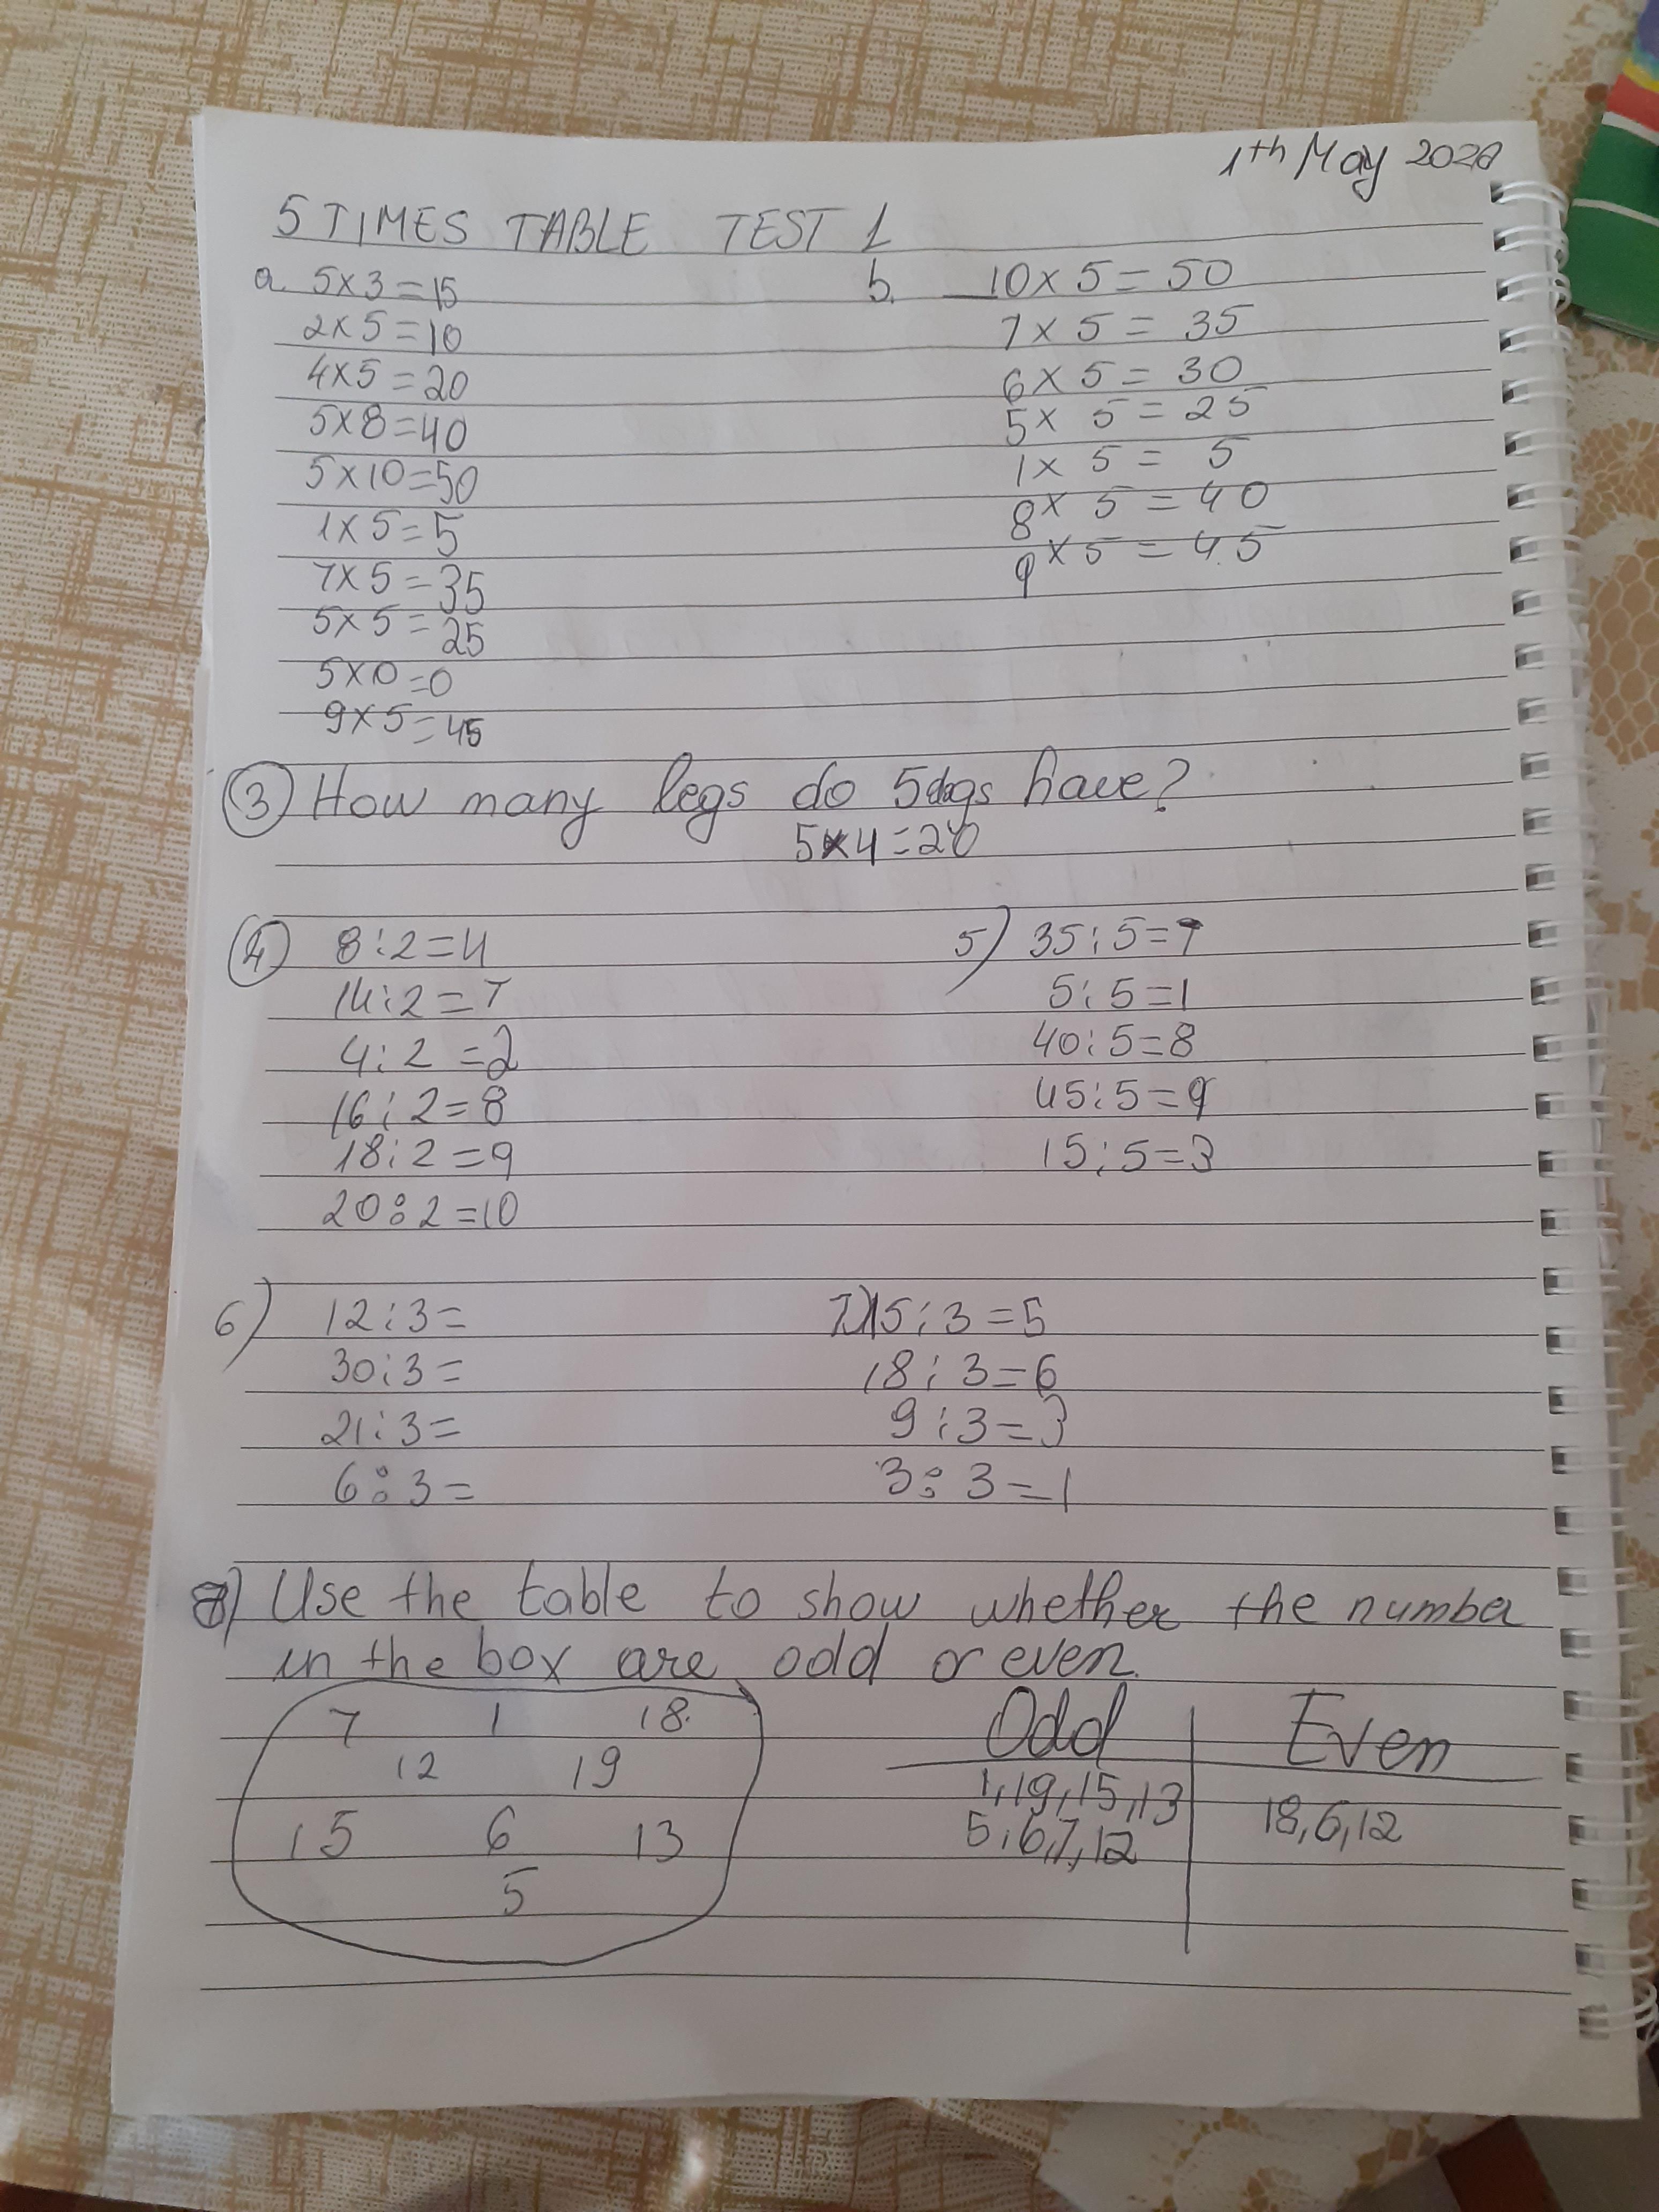 1th May 2020
5 TIMES TABLE TEST 1
a. 5x3=15
2x5=10
4x5=20
5x8=40
5x10=50
1x5=5
7x5=35
5x5=25
5x0=0
9x5=45
b. 10x5=50
7x5=35
6x5=30
5x5=25
1x5=5
8x5=40
9x5=45
3) How many legs do 5dogs have?
5x4=20
4) 8:2=4
14:2=7
4:2=2
16:2=8
18:2=9
20:2=10
5) 35:5=7
5:5=1
40:5=8
45:5=9
15:5=3
6) 12:3=
30:3=
21:3=
6:3=
7) 15:3=5
18:3=6
9:3=3
3:3=1
8) Use the table to show whether the number
in the box are odd or even.
7 1 18
12 19
15 6 13
5
Odd Even
1,19,15,13
5,6,7,12
18,6,12